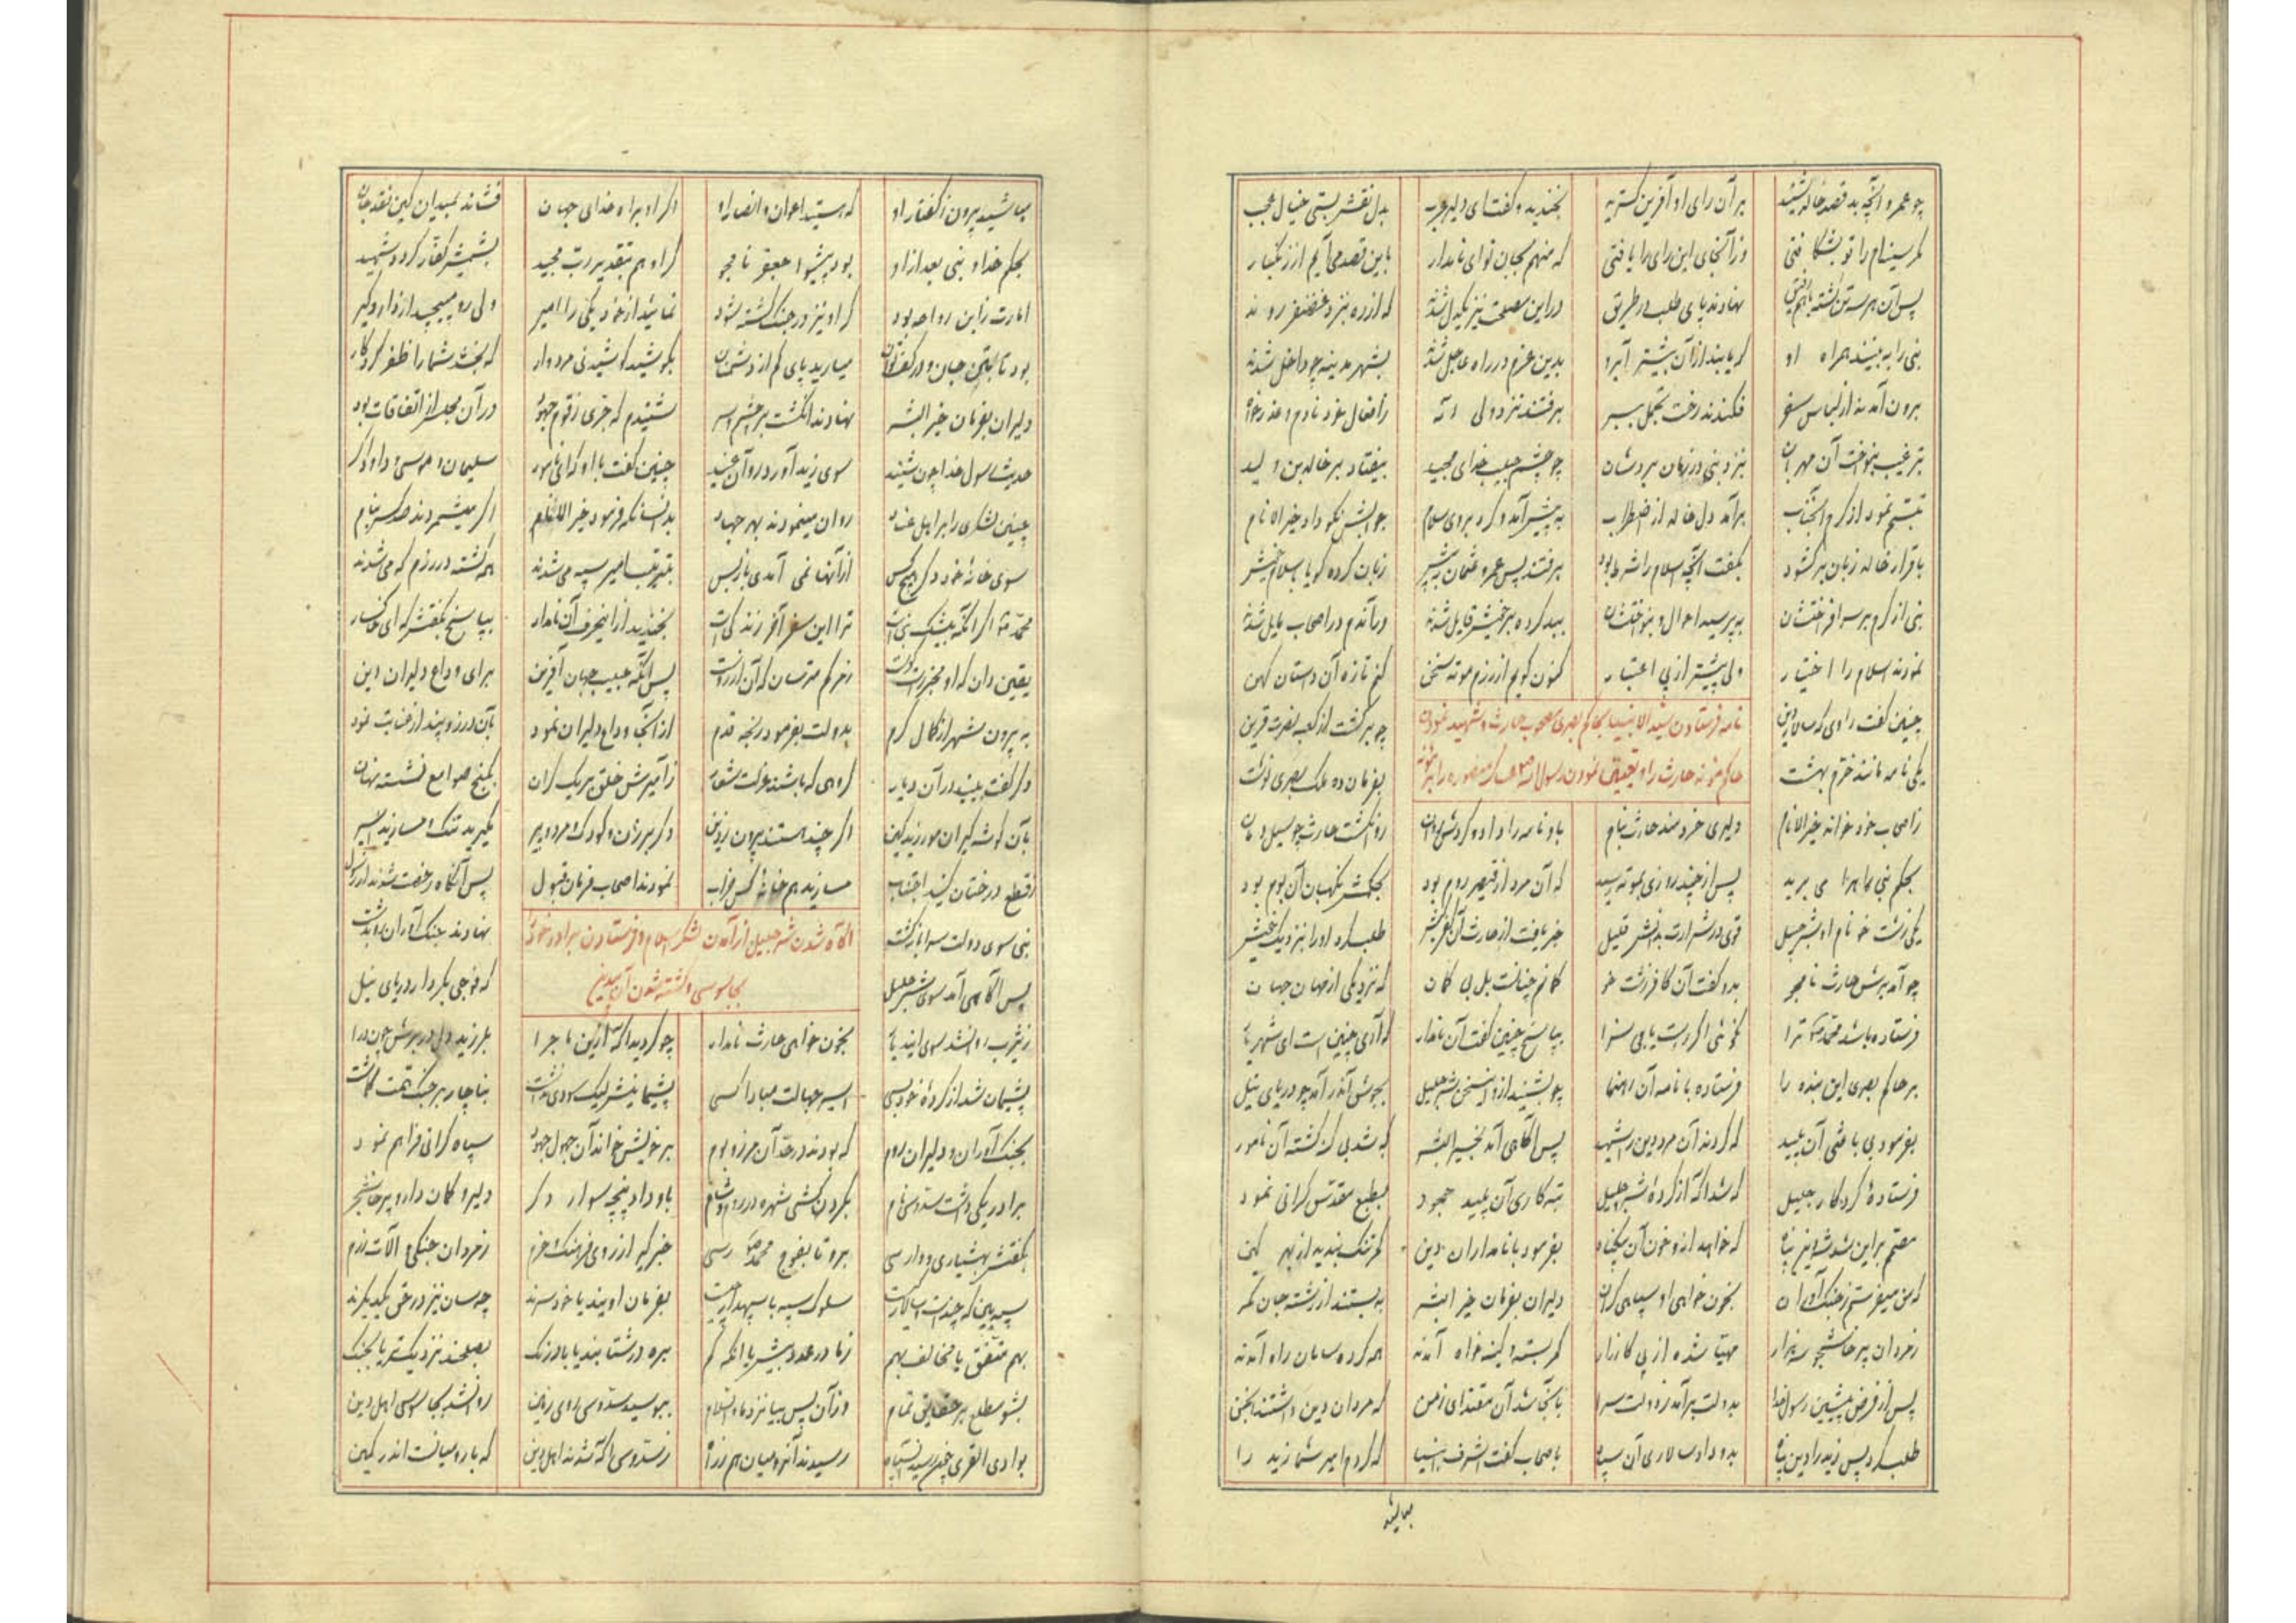 چو عمرو آنچه بد قصد خالد شنید بر آن رای او آفرین گسترید بخندید و گفت ای دلیر عرب بدل نقش بستی خیال عجب
مگر سینه‌ام را تو بشکافتی وز آنجای این رای را یافتی که منهم بجان تو ای نامدار باین قصد می‌آیم از زنگبار
پس آن هر سه تن گشته باهم رفیق نهادند پای طلب در طریق در این مصلحت نیز یکدل شدند که از ره بنزد غضنفر روند
نبی را به بینند همراه او که یابند از آن بیشتر آبرو بدین عزم در راه عاجل شدند بشهر مدینه چو داخل شدند
برون آمدند از لباس سفر فکندند رخت تجمل ببر برفتند نزد ولی اله ز افعال خود نادم و عذرخواه
بترغیب بنواخت آن مهربان بنزد نبی در زمان بردشان چو چشم حبیب خدای مجید بیفتاد بر خالد بن ولید
تبسم نمود از کرم آنجناب برآمد دل خالد از اضطراب به پیش آمد و کرد بر وی سلام جوابش نکو داد خیر الانام
باقرار خالد زبان برگشود بگفت آنچه اسلام را شرط بود برفتند پس عمرو عثمان به پیش زبان کرده گویا باسلام خویش
نبی از کرم بر سر افراختشان بپرسید احوال و بنواختشان ببد کرده بر خویش قایل شدند در آندم در اصحاب مایل شدند
نمودند اسلام را اختیار ولی پیشتر از پی اعتبار کنون گویم از رزم موته سخن کنم تازه آن داستان کهن
نامه فرستادن سید الانبیا بحاکم بصری بمصحوب حارث و شهید نمودن
حاکم موته حارث را و تعیین نمودن رسول خدا عساکر منصوره را بموته
چنین گفت راوی که سالار دین چو برگشت از کعبه نصرت قرین
یکی نامه مانند خرم بهشت بفرمان ده ملک بصری نوشت
ز اصحاب خود خواند خیر الانام دلیری خردمند حارث بنام باو نامه را داد و کردش روان روان گشت حارث چو سیل دمان
بحکم نبی راه را می برید پس از چند روزی بموته رسید که آن مرز از قیصر روم بود بحکمش نگهبان آن بوم بود
یکی زشت خو نام او شرجیل قوی در شرارت بدانش قلیل خبر یافت از حارث آن کفر کیش طلب کرد او را بنزدیک خویش
چو آمد برش حارث نامجو بدو گفت آن کافر زشت خو گمانم چنانست بل بی گمان که نزدیکی از مهان جهان
فرستاده باشد محمد ترا نکوئی اگر راست یابی سزا بپاسخ چنین گفت آن نامدار که آری چنین است ای شهریار
بر حاکم بصری این بنده را فرستاده با نامه آن رهنما چو بشنید از او این سخن شرجیل بجوش آمد چو دریای نیل
بفرمود پس با غشی آن پلید که کردند آن مرد دین را شهید پس آگاهی آمد بخیر البشر که شد بی گنه کشته آن نامور
فرستادهٔ کردگار جلیل که شد آگه از کردهٔ شرجیل تبه کاری آن پلید جحود بطبع مقدس گرانی نمود
مصمم بر این شد شه دین پناه که خواهد از و خون آن بیگناه بفرمود با نامداران دین کمر تنگ بندید از بهر کین
که من میفرستم ز جنگ آوران بخون خواهی او سپاهی گران دلیران بفرمان خیر البشر به بستند از رشته جان کمر
ز مردان پرخاشجو سه هزار مهیا شده از پی کارزار کمر بسته و کینه خواه آمدند همه کرده سامان راه آمدند
پس از فرض پیشین رسول خدا بدولت برآمد ز دولت سرا بآنجا شد آن مقتدای زمن که مردان دین داشتند انجمن
طلب کرد پس زید را دین پناه بدو داد سالاری آن سپاه باصحاب گفت اشرف انبیا که کردم امیر شما زید را
مباشید
مباشید بیرون ز گفتار او که هستید اعوان و انصار او گر او براه خدای جهان فشاند بمیدان کین نقد جان
بحکم خدا و نبی بعد از او بود پیشوا جعفر نامجو گر او هم بتقدیر رب مجید بشمشیر کفار گردد شهید
امارت ز ابن رواحه بود گر او نیز در جنگ کشته شود نمائید از خود یکی را امیر ولی رو مپیچید از دار و گیر
بود تا بتن جان و در کف توان میارید پای کم از دشمنان بکوشید کوشیدنی مردوار که بخشد شما را ظفر کردگار
دلیران بفرمان خیر البشر نهادند انگشت بر چشم و سر شنیدم که حبری ز قوم جهود در آن مجلس از اتفاقات بود
حدیث رسول خدا چون شنید سوی زید آورد رو آن عنید چنین گفت با او که ای نامور سلیمان و موسی و داود گر
چنین لشکری را بر اهل عناد روان مینمودند بهر جهاد بدانسانکه فرمود خیر الانام اگر میشمردند صد کس بنام
سوی خانهٔ خود دگر هیچ کس از آنها نمی آمدی باز پس بترتیب امیر سپه می‌شدند همه کشته در رزم گه می‌شدند
محمد اگر آنکه بیشک نبی است ترا این سفر آخر زندگی است بخندید از این حرف آن نامدار بپاسخ بگفتش که ای خاکسار
پس آنگه حبیب جهان آفرین برای وداع دلیران دین
به بیرون شهر از کمال کرم بدولت بفرمود رنجه قدم از آنجا وداع دلیران نمود بآن درز و پند از عنایت نمود
دگر گفت بینید در آن دیار گروهی که باشند عزلت شعار ز آمیزش خلق بر یک کران بکنج صوامع نشسته نهان
بآن گوشه گیران مورزید کین اگر چند هستند بیرون ز دین دگر بر زن و کودک و مرد پیر مگیرید تنگ و مسازید اسیر
ز قطع درختان کنید اجتناب مسازید هم خانهٔ کس خراب نمودند اصحاب فرمان قبول پس آنگاه رخصت شدند از رسول
آگاه شدن شرجیل از آمدن لشکر اسلام و فرستادن برادر خود را
بجاسوسی و کشته شدن آن بیدین
نبی سوی دولت سرا بازگشت نهادند جنگ آوران رو بدشت
پس آگاهی آمد سوی شرجیل که فوجی بکردار دریای نیل
ز یثرب روان شد سوی این دیار بخون خواهی حارث نامدار چو گردید آگه از این ماجرا بلرزید دل در برش چون درا
پشیمان شد از کردهٔ خود بسی اسیر جهالت مبادا کسی پشیمانیش لیک سودی نداشت بناچار بر جنگ همت گماشت
بجنگ آوران و دلیران روم که بودند در حد آن مرز و بوم بر خویش خواند آن جهول جهود سپاه گرانی فراهم نمود
برادر یکی داشت سدوس نام بگردن کشی شهره در روم و شام باو داد پنجه سوار دگر دلیر و کمان دار و پرخاشجر
بگفتش بهشیاری و وارسی برو تا بفوج محمد رسی خبر گیر از روی فرهنگ و حزم ز مردان جنگی و آلات رزم
سپه بین که چند است و سالار کیست سلوک سپه با سپهدار چیست بفرمان اویند یا خودسرند چه سان نیز در حق یکدیگرند
بهم متفق یا مخالف بهم ز ما در عدد بیشتر یا که کم بره در شتابند یا با درنگ بصلحند نزدیکتر یا بجنگ
بشو مطلع بر حقایق تمام وز آن پس بیا نزد ما والسلام ببوسید سدوس روی زمین روان شد بجاسوسی اهل دین
بوادی القری چون رسید آن سپاه رسیدند آن رومیان هم ز راه ز سدوس آگه شدند اهل دین